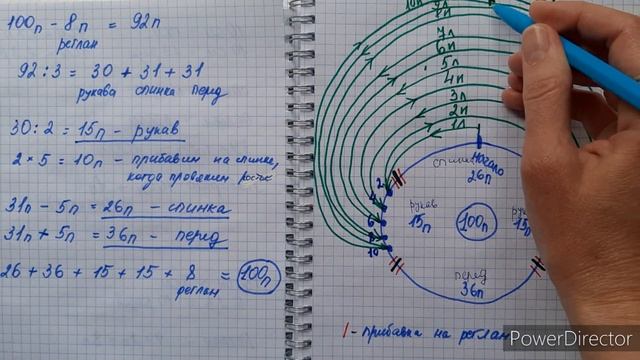 100п - 8п = 92п
реглан
92 : 3 = 30 + 31 + 31
рукава спинка перед
30 : 2 = 15п - рукав
2 × 5 = 10п - прибавим на спинке,
когда провяжем росток
31п - 5п = 26п - спинка
31п + 5п = 36п - перед
26 + 36 + 15 + 15 + 8 = 100п
реглан
10п
8п
7п
6п
5п
4п
3п
2п
1п
спинка
Начало
26п
2
10
рукав
15п
100п
рукав
15п
перед
36п
/ - прибавка на реглан
PowerDirector